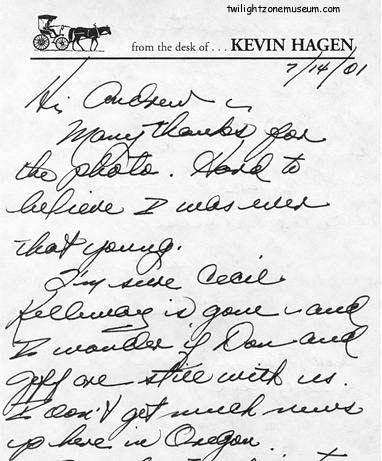 twilightzonemuseum.com
from the desk of . . . KEVIN HAGEN
7/14/01
Hi Andrew
Many thanks for
the photo. Hard to
believe I was ever
that young.
I'm sure Cecil
Kelloway is gone - and
I wonder if Dan and
Jeff are still with us.
I don't get much news
up here in Oregon.